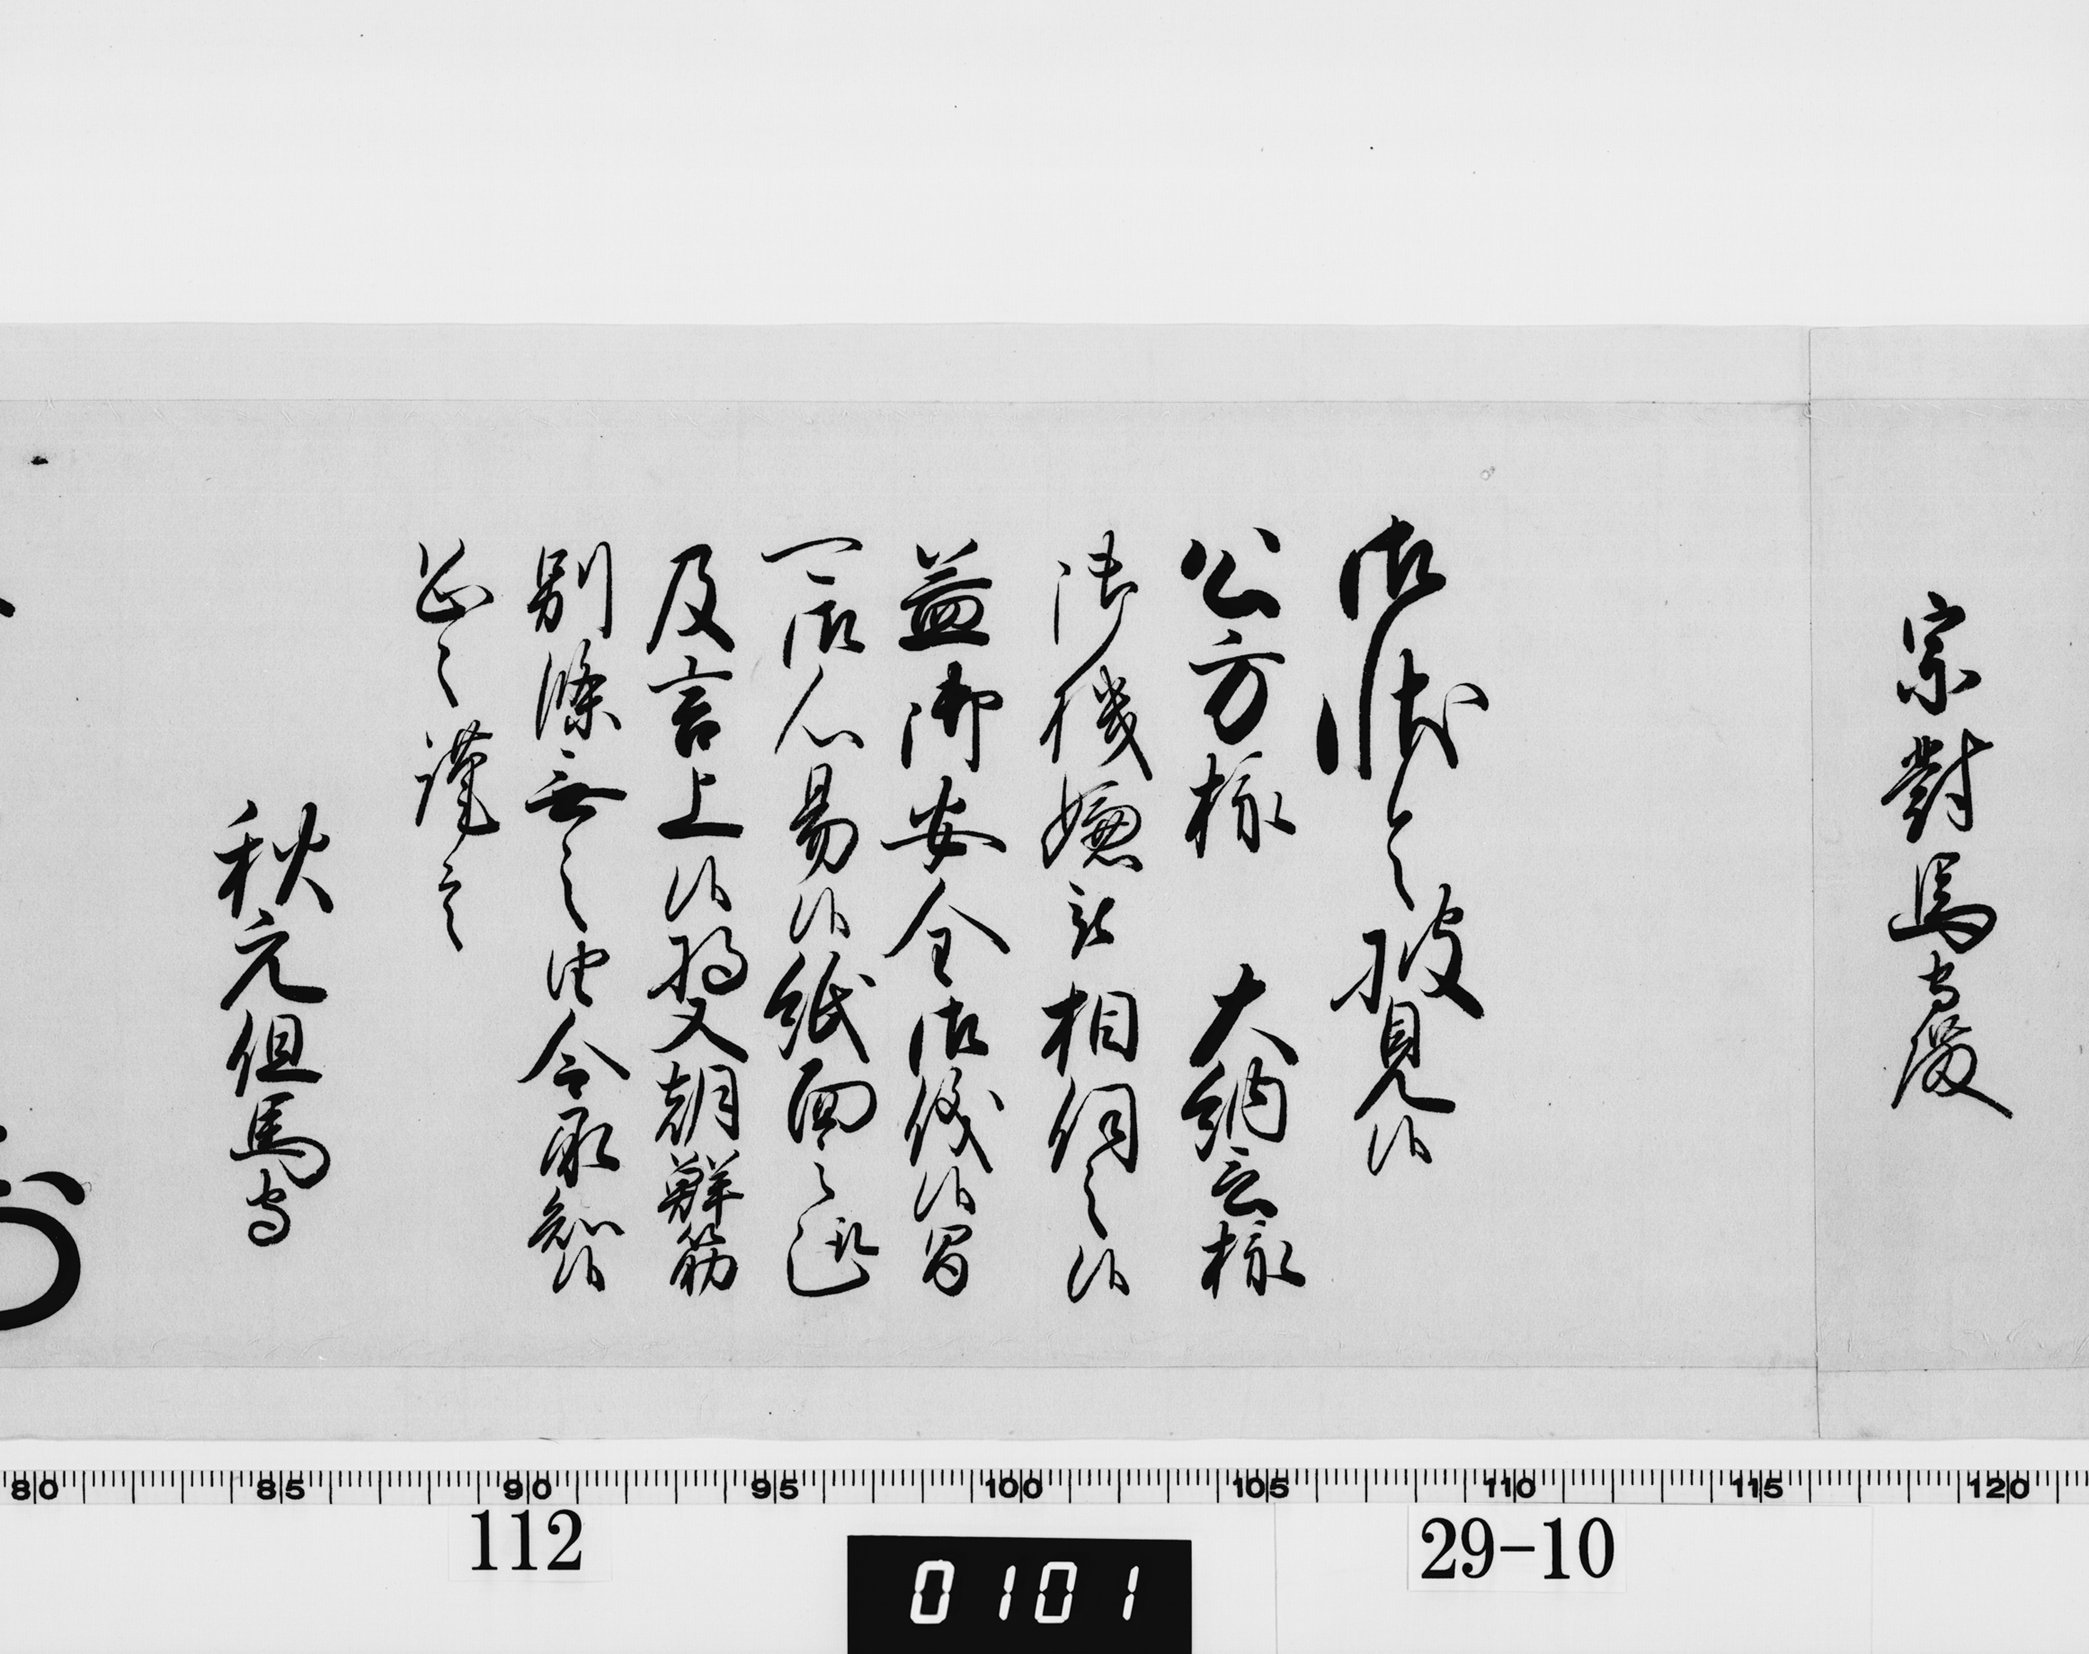 宗對馬守殿
御状令披見候
公方様 大納言様
御機嫌被相伺之候
益御安全御儀候間
可御心易候紙面之趣
及言上候将又朝鮮筋
別條無之由令承知候
恐々謹言
秋元但馬守
80 85 90 95 100 105 110 115 120
112
0101
29-10